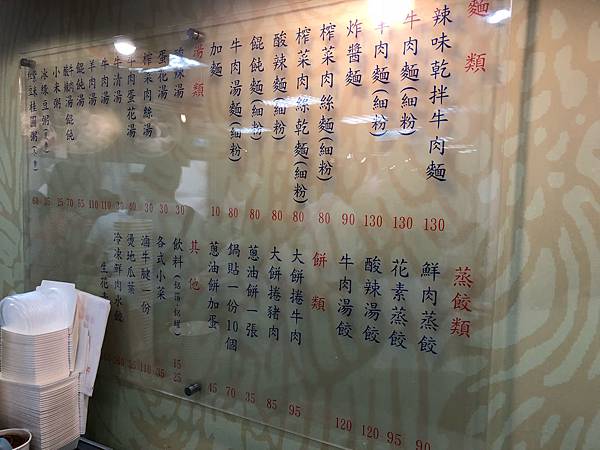 麵類
辣味乾拌牛肉麵 130
牛肉麵(細粉) 130
半肉麵(細粉) 130
炸醬麵 90
榨菜肉絲麵(細粉) 80
榨菜肉絲乾麵(細粉) 80
酸辣麵(細粉) 80
餛飩麵(細粉) 80
牛肉湯麵(細粉) 80
加麵 10
湯類
酸辣湯 30
蛋花湯 30
榨菜肉絲湯
牛肉蛋花湯
牛清湯
牛肉湯 110
羊肉湯 110
餛飩湯 65
酸辣湯餛飩 70
小米粥 25
冰綠豆粥
桂圓粥 60
蒸餃類
鮮肉蒸餃 90
花素蒸餃 95
酸辣湯餃 120
牛肉湯餃 120
餅類
大餅捲牛肉 95
大餅捲豬肉 85
蔥油餅一張 35
鍋貼一份10個 70
蔥油餅加蛋 45
其他
飲料 15 25
各式小菜 35
滷牛腱一份 110
燙地瓜葉 35
冷凍鮮肉水餃